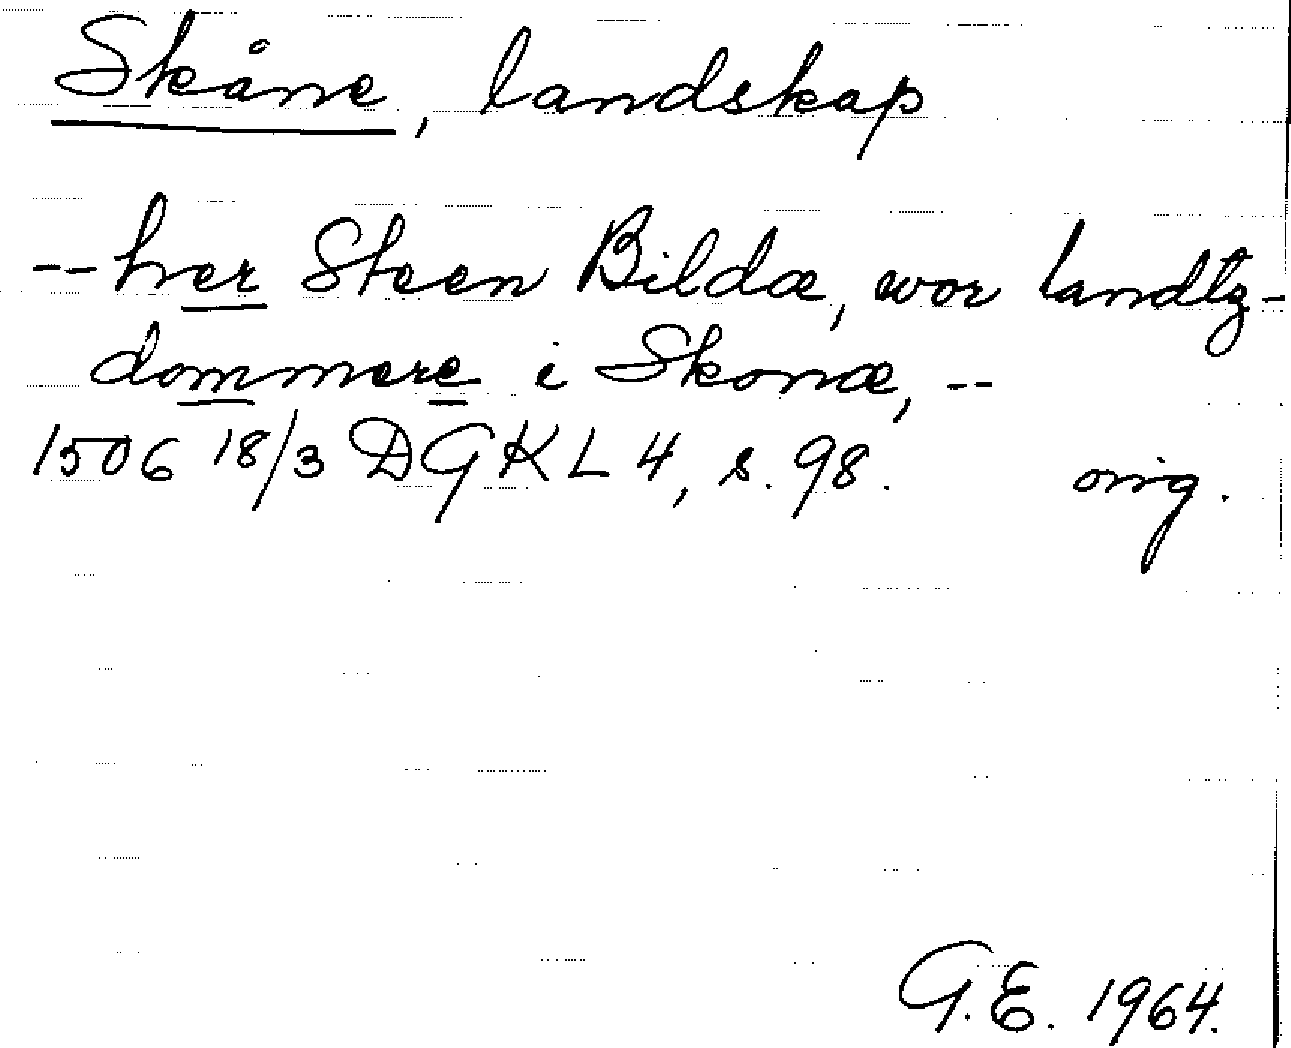 Skåne, landskap
-- her Steen Bildæ, wor landtz-
dommere i Skonæ, --
1506 18/3 DGKL 4, s. 98. orig.
G.E. 1964.